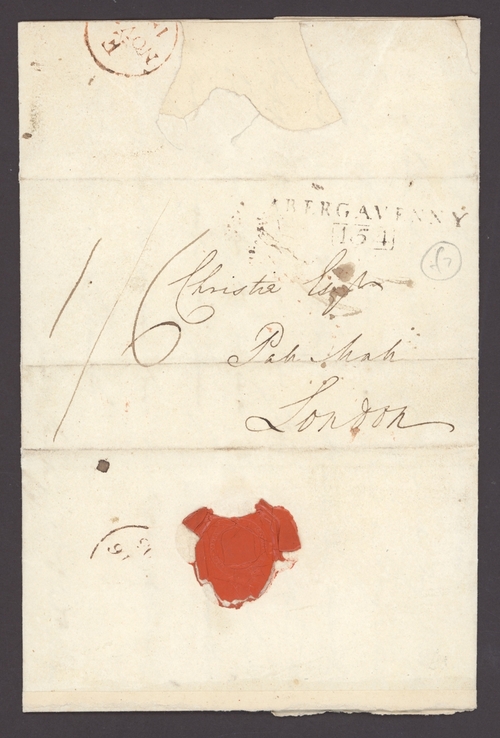 E
NOV
ABERGAVENNY
154
1/6
Christie Esqr
Pall Mall
London